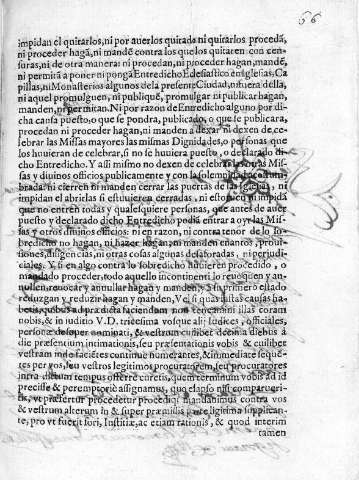 66
impidan el quitarlos, ni por auerlos quitado ni quitarlos procedã,
ni proceder hagã, ni mandẽ contra los que los quitaren con cen-
suras, ni de otra manera: ni procedan, ni proceder hagan, mandẽ,
ni permitã a poner ni pongã Entredicho Eclesiastico en Iglesias, Ca
pillas, ni Monasterios algunos de la presente Ciudad, ni fuera della,
ni aquel promulguen, ni publiquẽ, promulgar ni publicar hagan,
manden, ni permitan. Ni por razon de Entredicho alguno por di-
cha causa puesto, o que se pondra, publicado, o que se publicara,
procedan ni proceder hagan, ni manden a dexar ni dexen de ce-
lebrar las Missas mayores las mismas Dignidades, o personas que
los huuieran de celebrar, si no se huuiera puesto, o declarado di-
cho Entredicho. Y assi mismo no dexen de celebrar las otras Mis-
sas y diuinos officios publicamente y con la solemnidad acostum-
brada: ni cierren ni manden cerrar las puertas de las Iglesias, ni
impidan el abrirlas si estuuieren cerradas, ni estoruen ni impidã
que no entrẽn todas y qualesquiere personas, que antes de auer
puesto y declarado dicho Entredicho podiã entrar a oyr las Mis-
sas y otros diuinos oficios: ni en razon, ni contra tenor de lo so-
bredicho no hagan, ni hazer hagan, ni manden enantos, proui-
siones, diligencias, ni otras cosas algunas desaforadas, ni perjudi-
ciales. Y si en algo contra lo sobredicho huuieren procedido, o
mandado proceder, todo aquello incontinenti lo reuoquen y an-
nullen, reuocar y annullar hagan y manden, y a su primero estado
reduzgan y reduzir hagan y manden, Vel si quas iustas causas ha-
betis, quibus ad prædicta faciendum non teneamini illas coram
nobis, & in iudicio V.D. tricesima vosque alij Iudices, officiales,
personæ desuper nominati, & vestrum cuilibet decima diebus à
die præsentium intimationis, seu præsentationis vobis & cuilibet
vestrum inde faciẽtes continuè numerantes, & immediatè sequẽ-
tes per vos, seu vestros legitimos procuratorem, seu procuratores
intra dictum tempus offerre curetis, quem terminum vobis ad id
precisè & peremptoriè assignamus, quo elapso nisi comparueri-
tis, vt præfertur procedetur procediqué mandabimus contra vos
& vestrum alterum in & super præmissis parte legitima supplican-
te, pro vt fuerit fori, Iustitiæ, ac etiam rationis, & quod interim
tamen